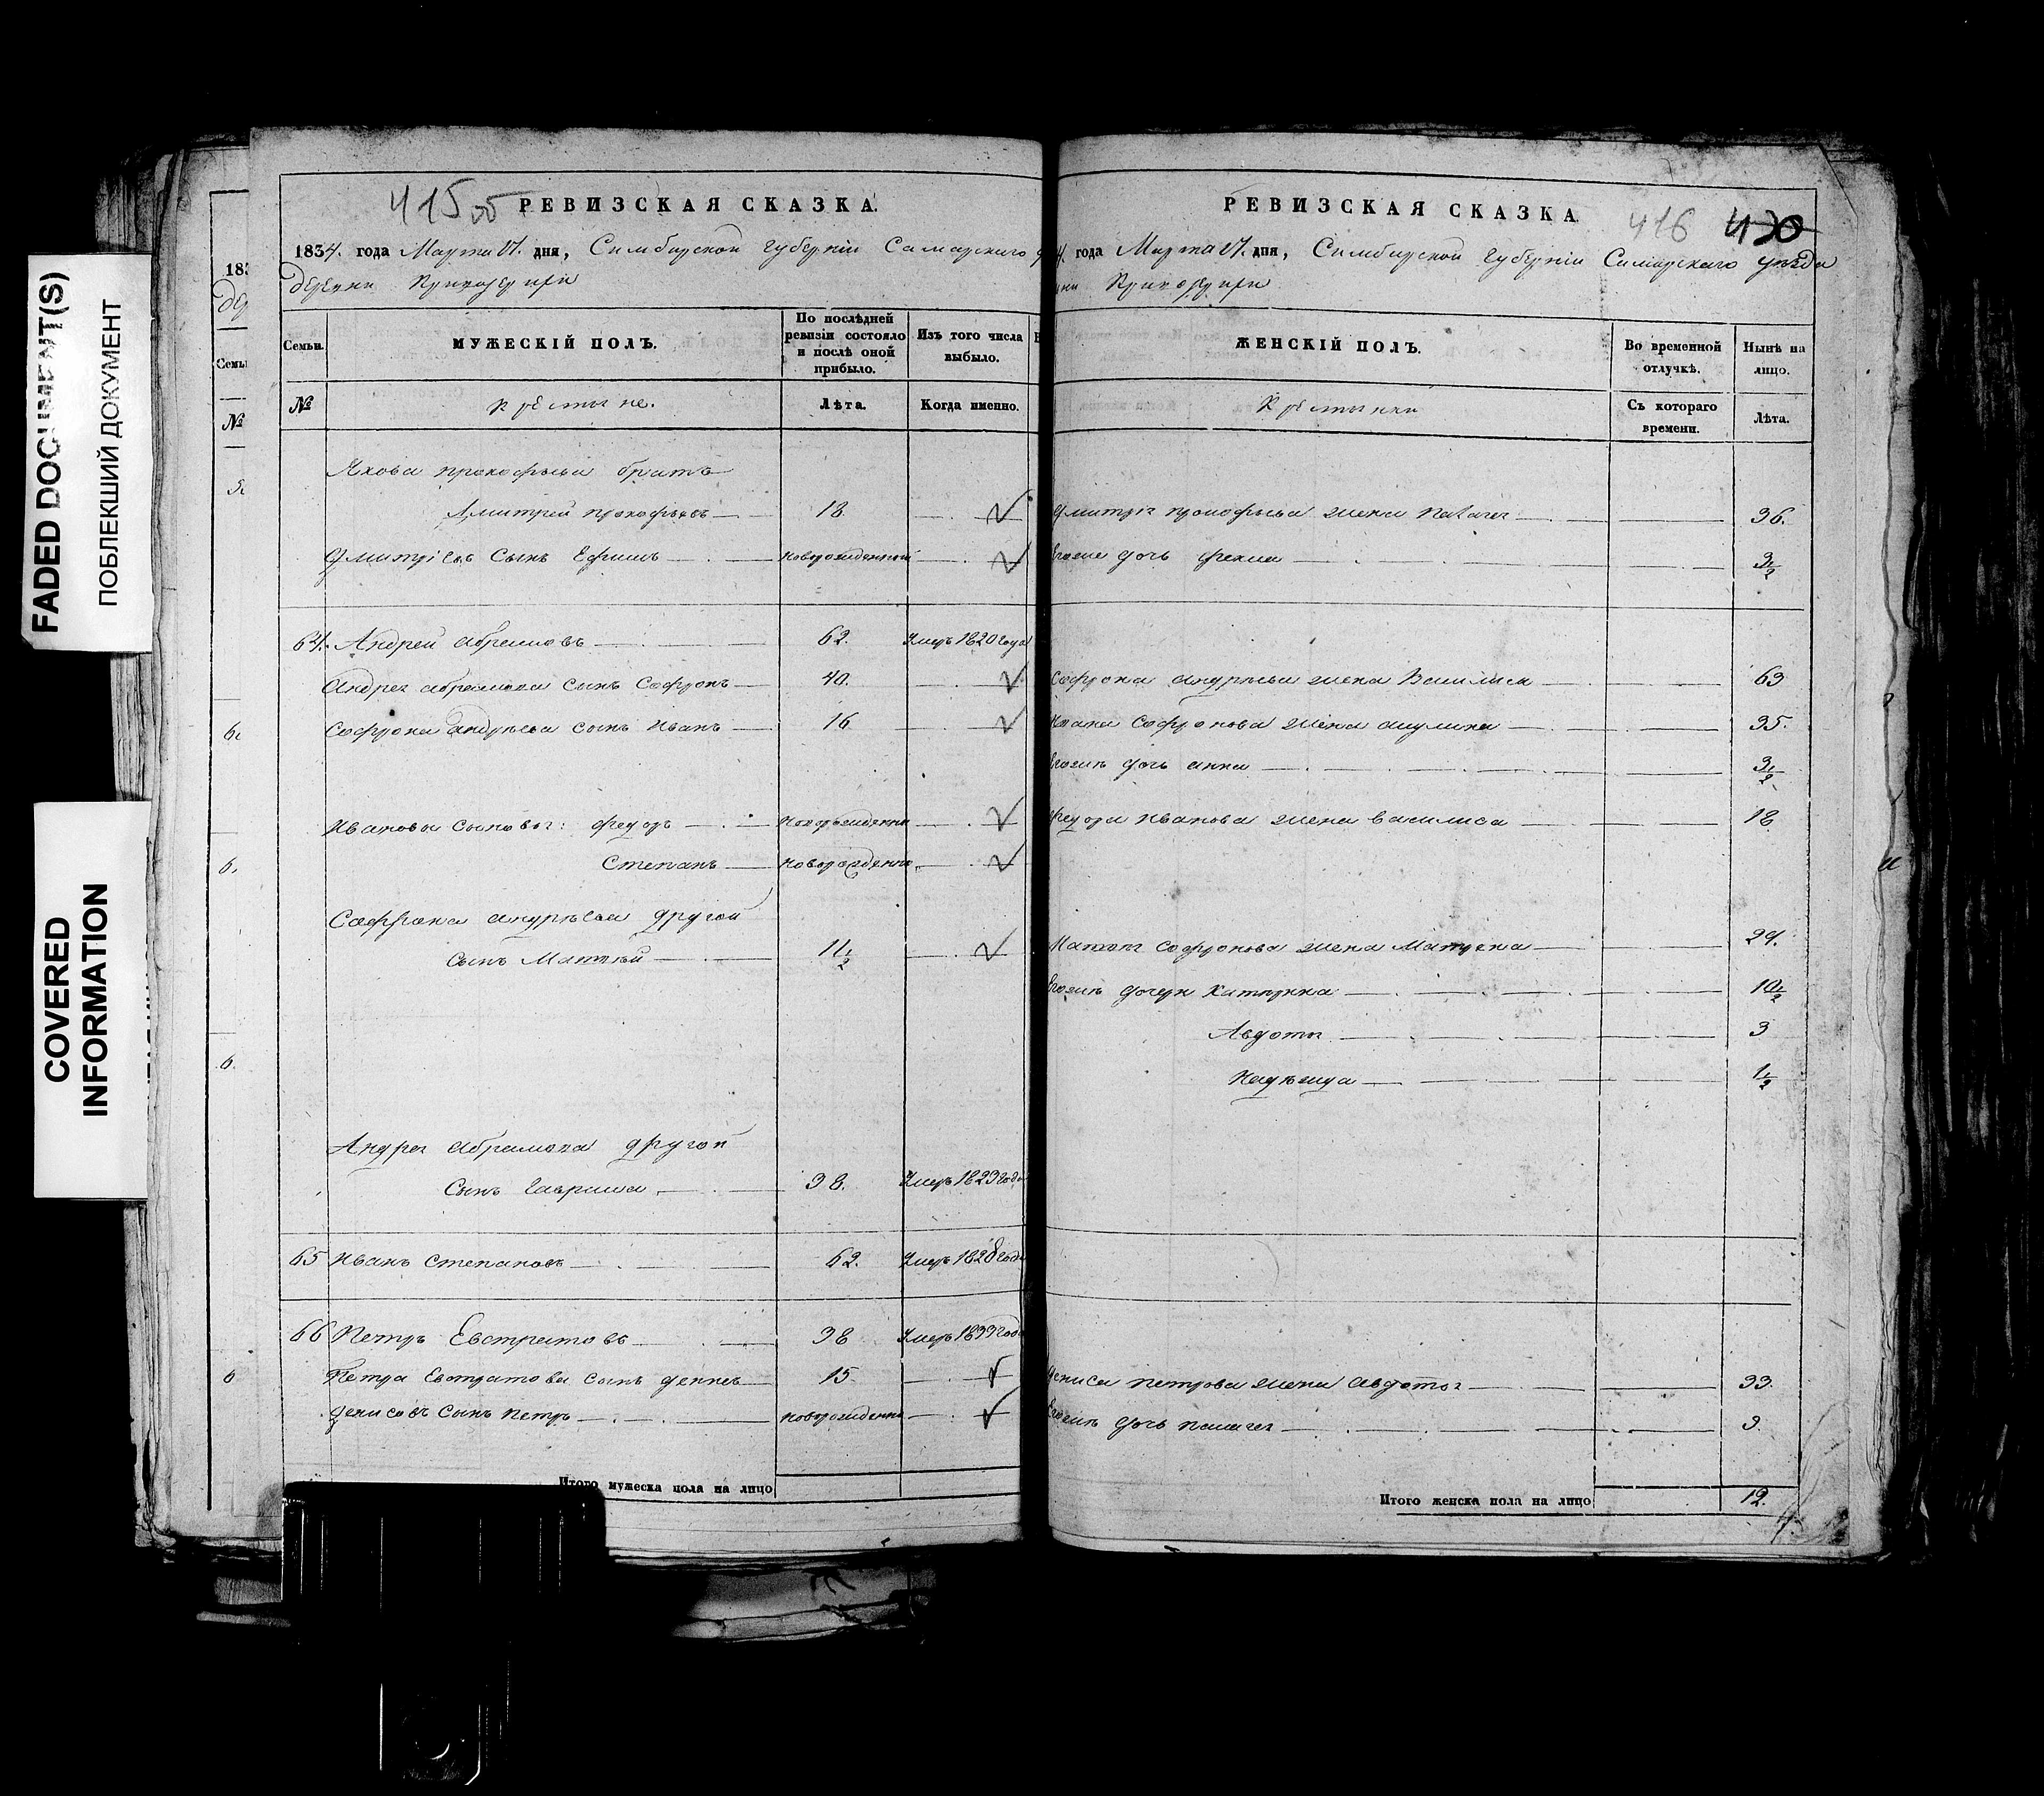 FADED DOCUMENT(S)
ПОБЛЕКШИЙ ДОКУМЕНТ
COVERED
INFORMATION
415 об
РЕВИЗСКАЯ СКАЗКА.
1834. года Марта 17. дня, Симбирской губернiи Самарскаго
деревни
Семьи.
МУЖЕСКIЙ ПОЛЪ.
По послѣдней ревизiи состояло и послѣ оной прибыло.
Изъ того числа выбыло.
№
Лѣта.
Когда именно.
Якова прокофьева братъ
Дмитрей прокофьевъ 18
Дмитрiевъ Сынъ Ефимъ новорожденной
64. Андрей абрамовъ 62. Умеръ 1820 года
Андрея абрамова сынъ Софронъ 40.
Софрона андрѣева сынъ иванъ 16
ивановы сыновья: федоръ новорожденны
Степанъ новорожденны
Софрона андрѣева другой
Сынъ Матвѣй 11½
Андрея абрамова другой
Сынъ гаврила 38. Умеръ 1823 года
65 иванъ степановъ 62. Умеръ 1828 года
66 Петръ Евстратовъ 38 Умеръ 1833 года
Петра Евстратова сынъ денисъ 15
денисовъ сынъ петръ новорожденны
Итого мужеска пола на лицо
РЕВИЗСКАЯ СКАЗКА
416 430
4. года Марта 17. дня, Симбирской губернiи Самарскаго уѣзда
ЖЕНСКIЙ ПОЛЪ.
Во временной отлучкѣ.
Нынѣ на лицо.
Съ котораго времени.
Лѣта.
Дмитрiя прокофьева жена 36.
дочь фекла 3½
Софрона андрѣева жена Василиса 63
ивана Софронова жена акулина 35.
Егожъ дочь анна 3½
федора иванова жена василиса 18
Матвѣя софронова жена Матрена 29.
Егожъ дочери катерина 10½
Авдотья 3
надѣжда 1½
дениса петрова жена авдотья 33.
Егожъ дочь пелагея 9.
Итого женска пола на лицо 12.